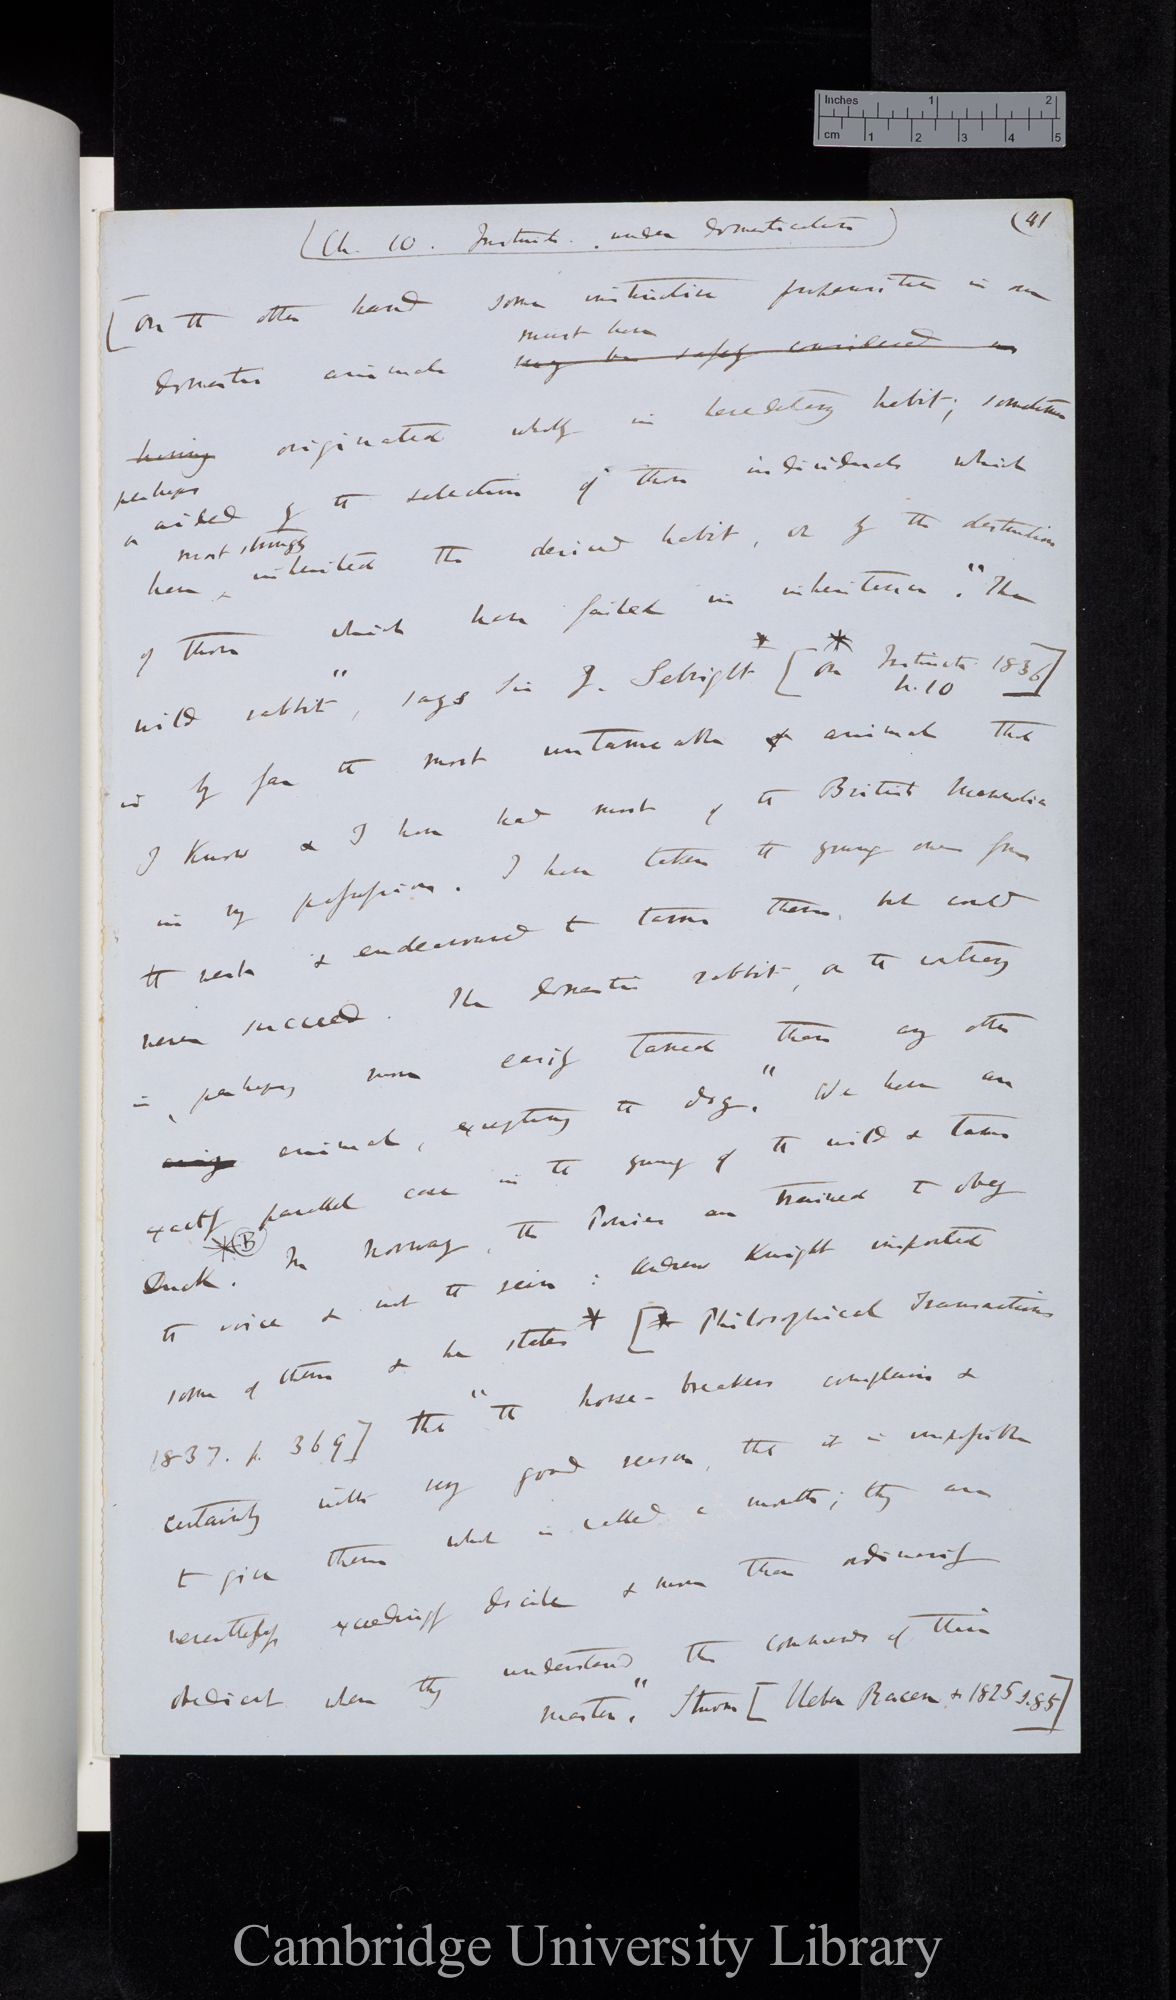 Inches 1 2
cm 1 2 3 4 5
(Ch. 10. Instincts. under Domestication)
(41
[On the other hand some instinctive propensities in our
must have
domestic animals may be safely considered as
having originated wholly in hereditary habit; sometimes
perhaps
aided by the selection of those individuals which
most strongly
have inherited the desired habit, or by the destruction
of those which have failed in inheritance. "The
wild rabbit", says Sir J. Sebright * [* On Instincts 1836
p. 10]
is by far the most untameable animal that
I know & I have had most of the British Mammalia
in my possession. I have taken the young ones from
the nest & endeavoured to tame them, but could
never succeed. The domestic rabbit, on the contrary
is, perhaps, more easily tamed than any other
animal, excepting the dog." We have an
exactly parallel case in the young of the wild & tame
*(B)
Duck. In Norway, the Ponies are trained to obey
the voice & not the rein: Andrew Knight imported
some of them & he states * [* Philosophical Transactions
1837. p. 369] that "the horse-breakers complain &
certainly with very good reason, that it is impossible
to give them what is called a mouth; they are
nevertheless exceedingly docile & more than ordinarily
obedient when they understand the commands of their
master." Sturm [Ueber Racen &. 1825 s.85]
Cambridge University Library